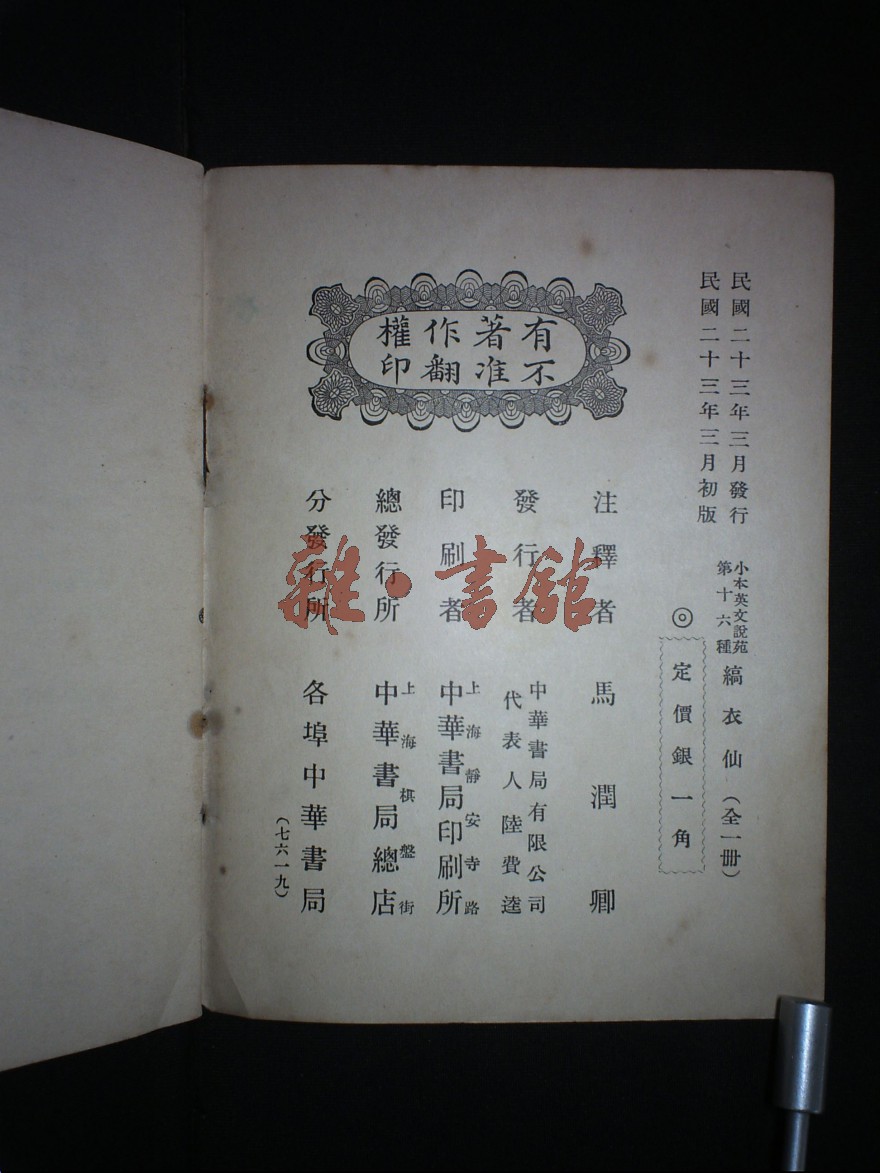 民國二十三年三月發行
民國二十三年三月初版
小本英文說苑
第十六種
縞衣仙(全一册)
◎定價銀一角
有著作權
不准翻印
注釋者 馬潤卿
發行者 中華書局有限公司
代表人陸費逵
印刷者 上海靜安寺路
中華書局印刷所
總發行所 上海棋盤街
中華書局總店
分發行所 各埠中華書局
(七六一九)
雜·書館